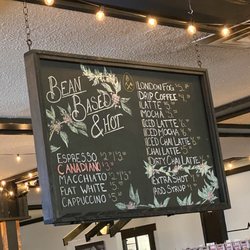 BEAN
BASED
& HOT
ESPRESSO
CANADIANO
MACCHIATO
FLAT WHITE
CAPPUCCINO
LONDON FOG
DRIP COFFEE
LATTE
MOCHA
ICED LATTE
ICED MOCHA
ICED CHAI LATTE
CHAI LATTE
DIRTY CHAI LATTE
EXTRA SHOT
ADD SYRUP